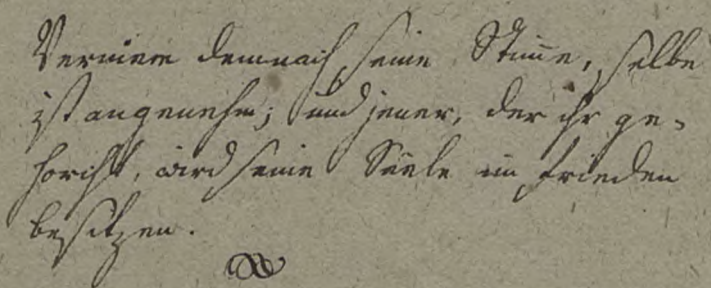 Vernimm demnach seine Stimme, selbe
ist angenehm; und jener, der ihr ge-
horcht, wird seine Seele im Frieden
besitzen.